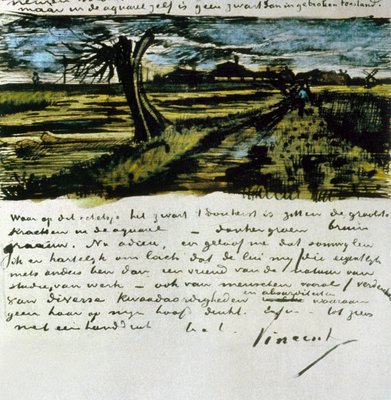 maar in de aquarel zelf is geen zwart dan in gebroken toestand.
Waar op dit schetsje het zwart 't donkerst is zitten de grootste
krachten in de aquarel — donkergroen bruin
graauw. Nu adieu, en geloof me dat somwijlen
ik er hartelijk om lach dat de lui mij (die eigentlijk
niets anders ben dan een vriend van de natuur van
studie, van werk — ook van menschen vooral) verdenken
van diverse kwaadaardigheden en absurditeiten waaraan
geen haar op mijn hoofd denkt. Enfin — tot ziens
met een handdruk t. à t.
Vincent